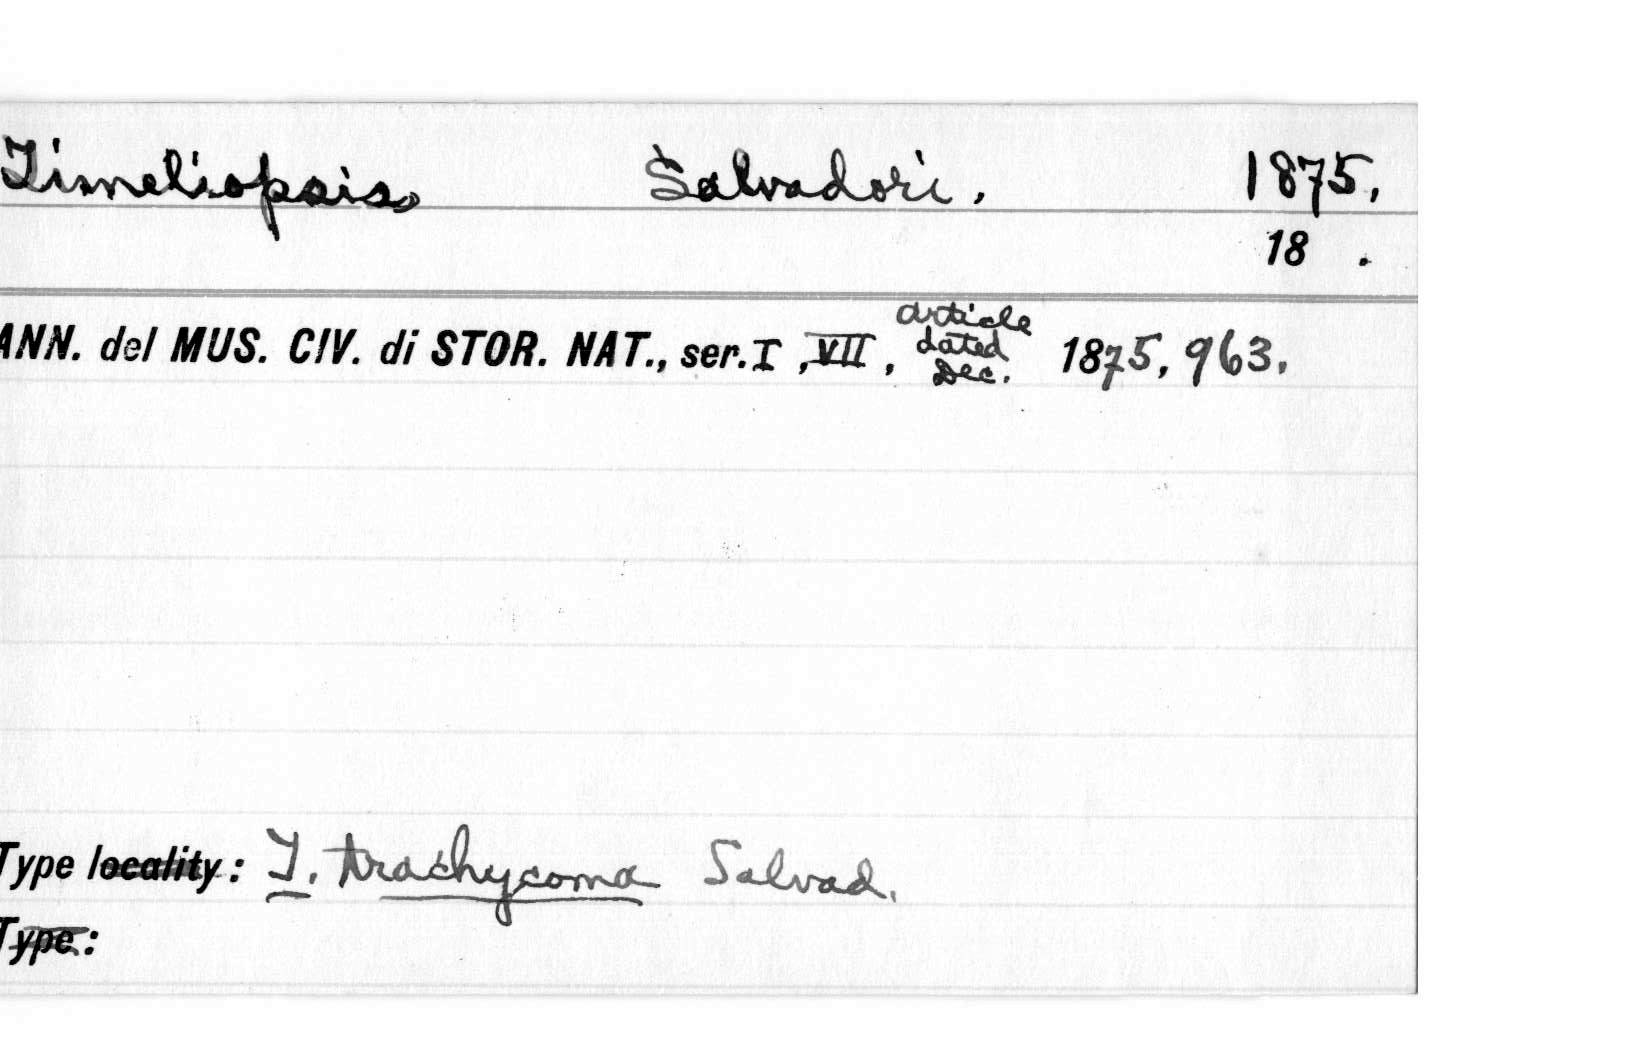 Timeliopsis, Salvadori. 1875.
18 .
ANN. del MUS. CIV. di STOR. NAT., ser. I, VII, article dated Dec. 1875, 963.
Type locality: T. trachycoma Salvad.
Type: